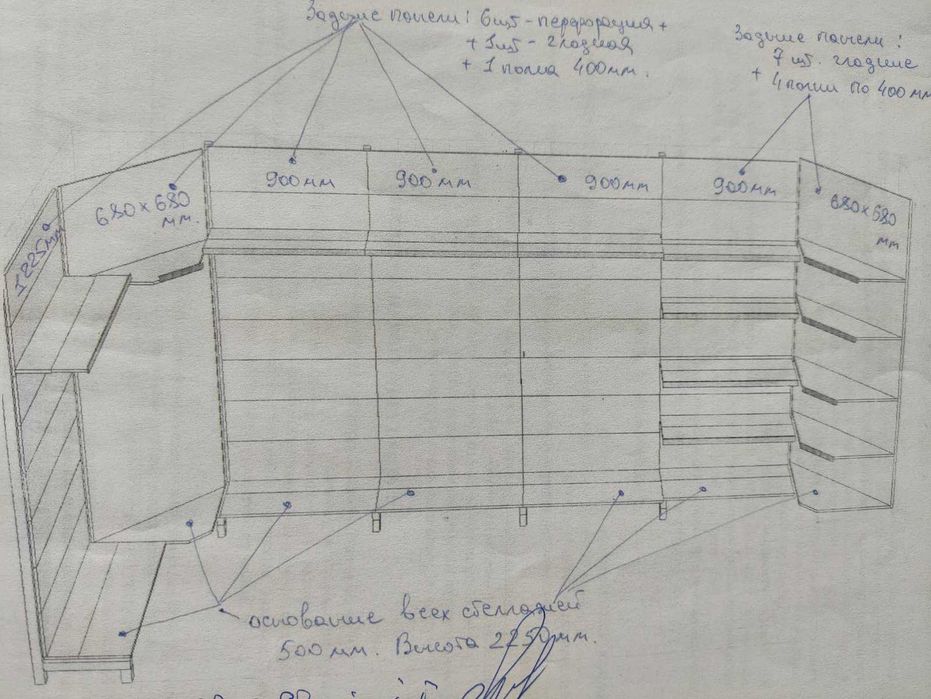 Задние панели: 6шт - перфорация +
+ 1шт - гладкая
+ 1 полка 400мм.
Задние панели:
7 шт. гладкие
+ 4 полки по 400 мм
900мм
900мм
900мм
900мм
680×680
мм.
680×680
мм
1225мм
основание всех стеллажей
500 мм. Высота 2250мм.